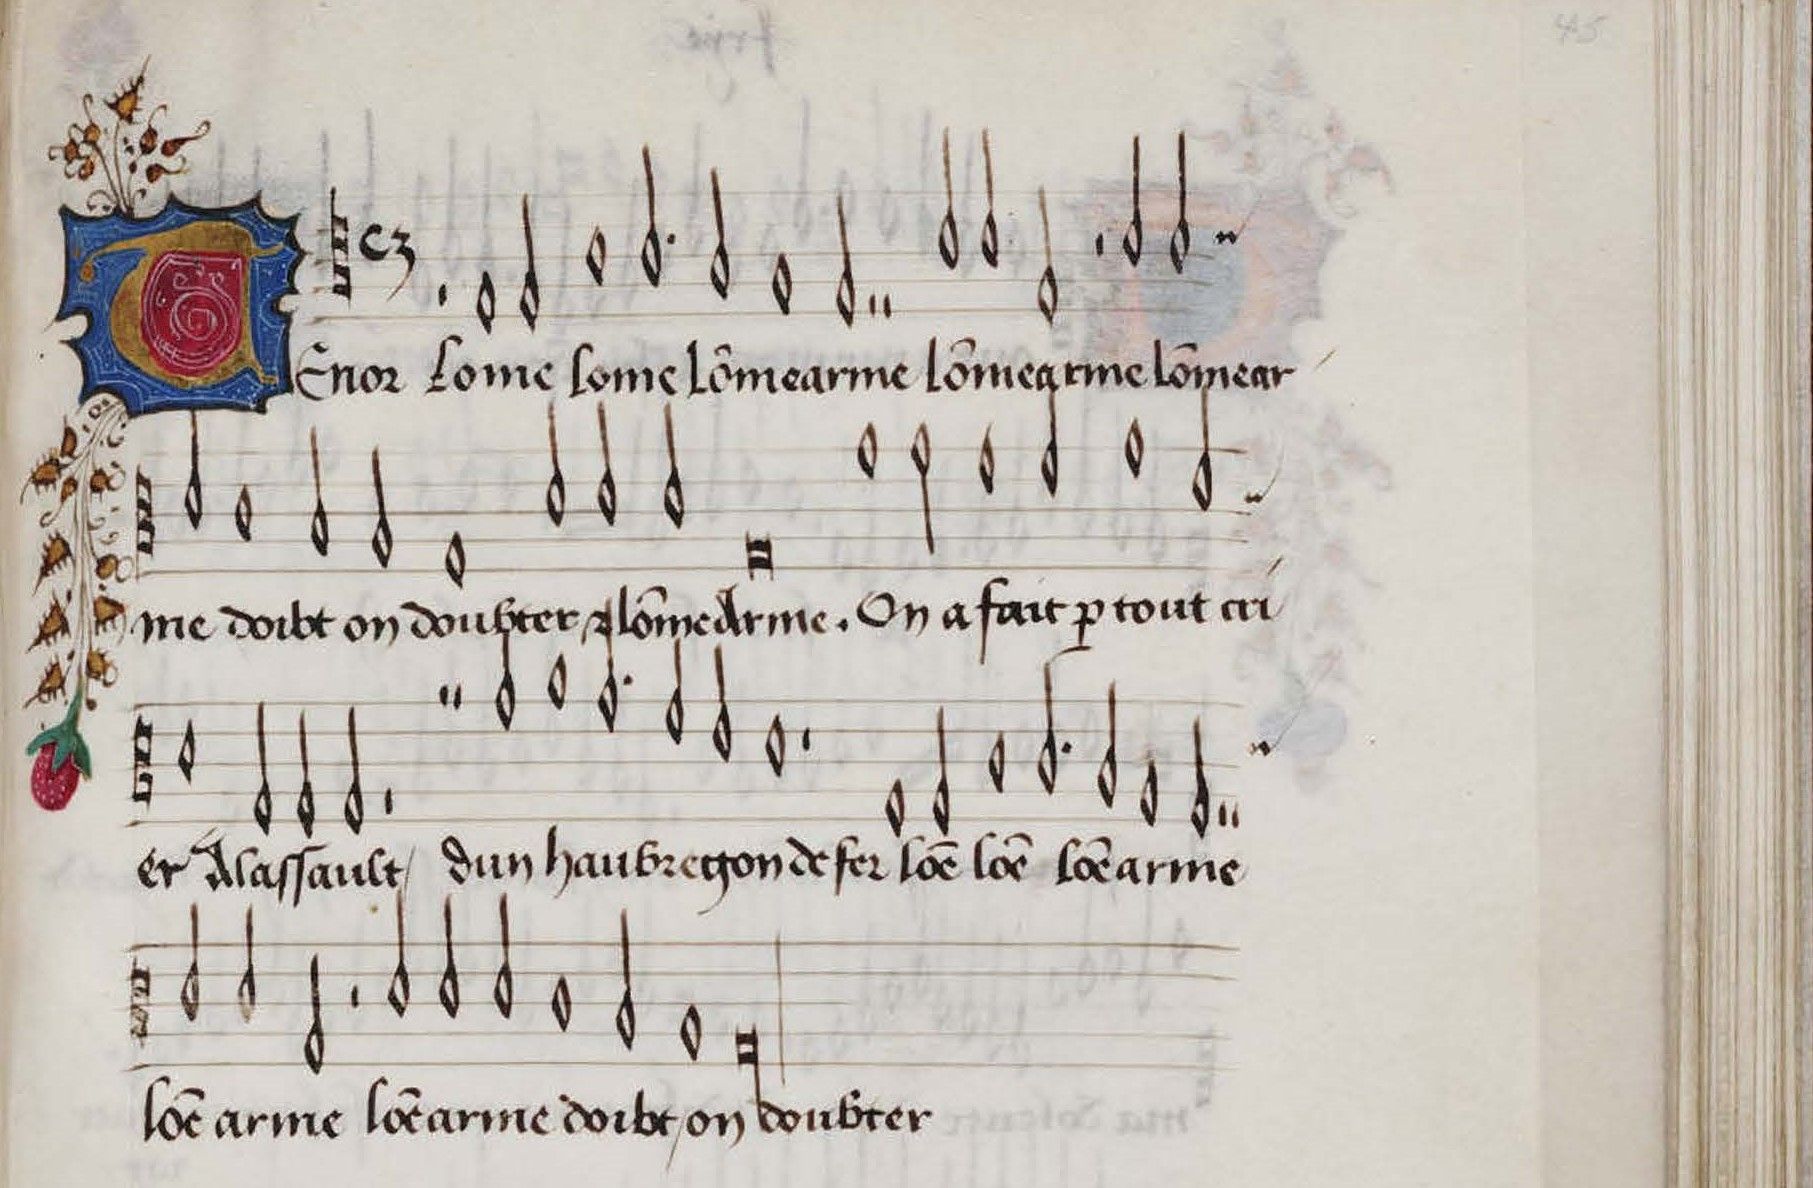 45
TEnor Lome lome lōmearme lōmearme lōmear
me doibt on doubter lōmeArme. On a fait p tout cri
er Alassault dun haubregon de fer loē loē loēarme
loē arme loēarme doibt on doubter